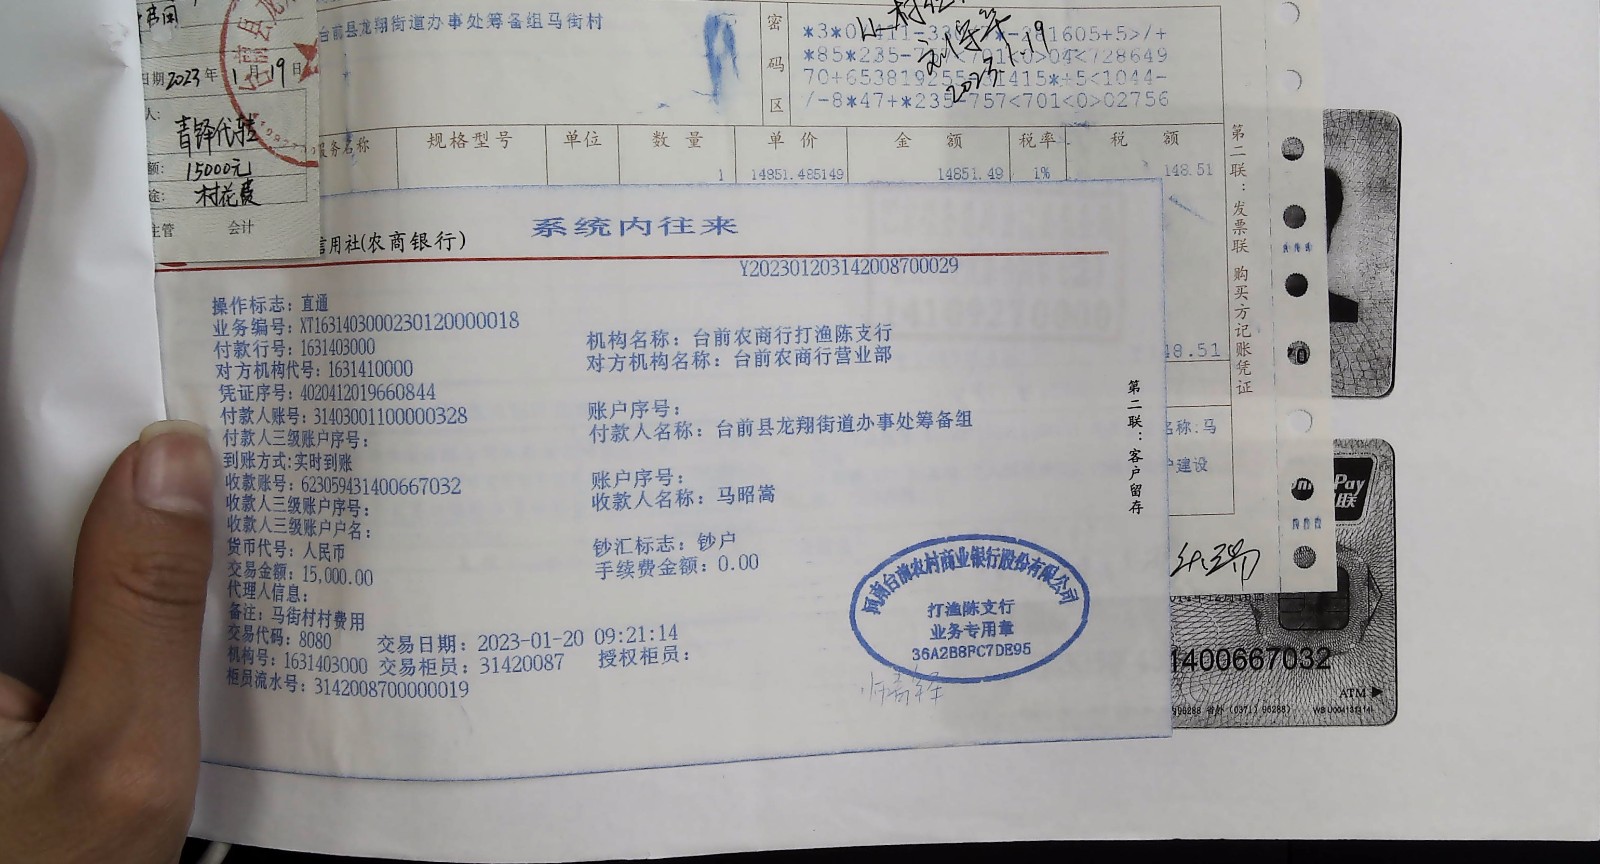 台前县龙翔街道办事处筹备组马街村
密码区
*85*235-
<728649
70+653819255
415*+5<1044-
/-8*47+*235-757<701<0>02756
2023.1.19
日期2023年1月19日
15000元
村花费
主管 会计
服务名称 规格型号 单位 数量 单价 金额 税率 税额
1 14851.485149 14851.49 1% 148.51
第二联：发票联 购买方记账凭证
48.51
名称:马
户建设
信用社(农商银行)
系统内往来
Y202301203142008700029
操作标志：直通
业务编号：XT1631403000230120000018
付款行号：1631403000 机构名称：台前农商行打渔陈支行
对方机构代号：1631410000 对方机构名称：台前农商行营业部
凭证序号：402041201966​0844
付款人账号：31403001100000328 账户序号：
付款人三级账户序号： 付款人名称：台前县龙翔街道办事处筹备组
到账方式:实时到账
收款账号：623059431400667032 账户序号：
收款人三级账户序号： 收款人名称：马昭嵩
收款人三级账户户名：
货币代号：人民币 钞汇标志：钞户
交易金额：15,000.00 手续费金额：0.00
代理人信息：
备注：马街村村费用
交易代码：8080 交易日期：2023-01-20 09:21:14
机构号：1631403000 交易柜员：31420087 授权柜员：
柜员流水号：3142008700000019
第二联：客户留存
河南台前农村商业银行股份有限公司
打渔陈支行
业务专用章
36A2B8FC7DE95
Pay
联
1400667032
ATM